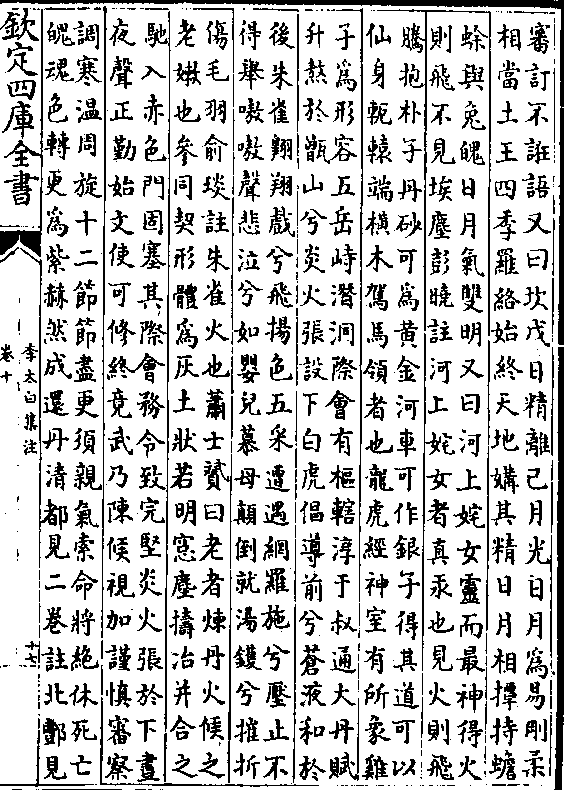 審訂不誑語又曰坎戊日精離己月光日月為易剛柔
相當土王四季羅絡始終天地媾其精日月相撢持蟾
蜍與兔魄日月氣雙明又曰河上姹女靈而最神得火
則飛不見埃塵彭曉註河上姹女者真汞也見火則飛
騰抱朴子丹砂可為黃金河車可作銀子得其道可以
仙身軛轅端橫木駕馬領者也龍虎經神室有所象雞
子為形容五岳峙潛洞際會有樞轄淳于叔通大丹賦
升熬於甑山兮炎火張設下白虎倡導前兮蒼液和於
後朱雀翺翔戲兮飛揚色五采遭遇網羅施兮壓止不
得舉嗷嗷聲悲泣兮如嬰兒慕母顛倒就湯鑊兮摧折
傷毛羽俞琰註朱雀火也蕭士贇曰老者煉丹火候之
老嫩也參同契形體為灰土狀若明窓塵擣冶并合之
馳入赤色門固塞其際會務令致完堅炎火張於下晝
夜聲正勤始文使可修終竟武乃陳候視加謹慎審察
調寒溫周旋十二節節盡更須親氣索命將絶休死亡
魄魂色轉更為紫赫然成還丹清都見二卷註北酆見
欽定四庫全書
李太白集注
卷十
十七